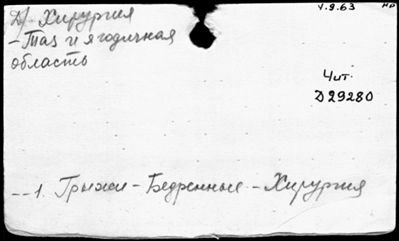 Д/ Хирургия
- Таз и ягодичная
область
V.9.63
нр
Чит.
Д29280
--1. Грыжи - Бедренные - Хирургия